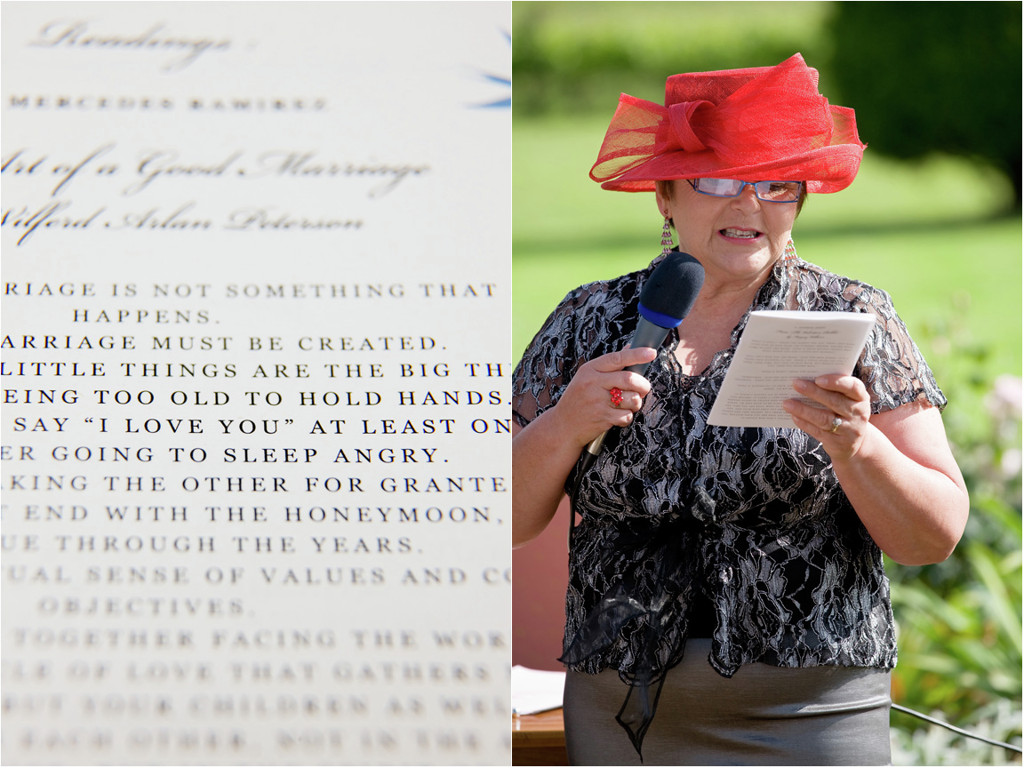 Readings
MERCEDES RAMIREZ
Art of a Good Marriage
Wilferd Arlan Peterson
RIAGE IS NOT SOMETHING THAT
HAPPENS.
ARRIAGE MUST BE CREATED.
LITTLE THINGS ARE THE BIG TH
EING TOO OLD TO HOLD HANDS.
SAY “I LOVE YOU” AT LEAST ON
ER GOING TO SLEEP ANGRY.
AKING THE OTHER FOR GRANTE
T END WITH THE HONEYMOON,
UE THROUGH THE YEARS.
TUAL SENSE OF VALUES AND CO
OBJECTIVES.
TOGETHER FACING THE WOR
LE OF LOVE THAT GATHERS
BUT YOUR CHILDREN AS WEL
EACH OTHER, NOT IN THE